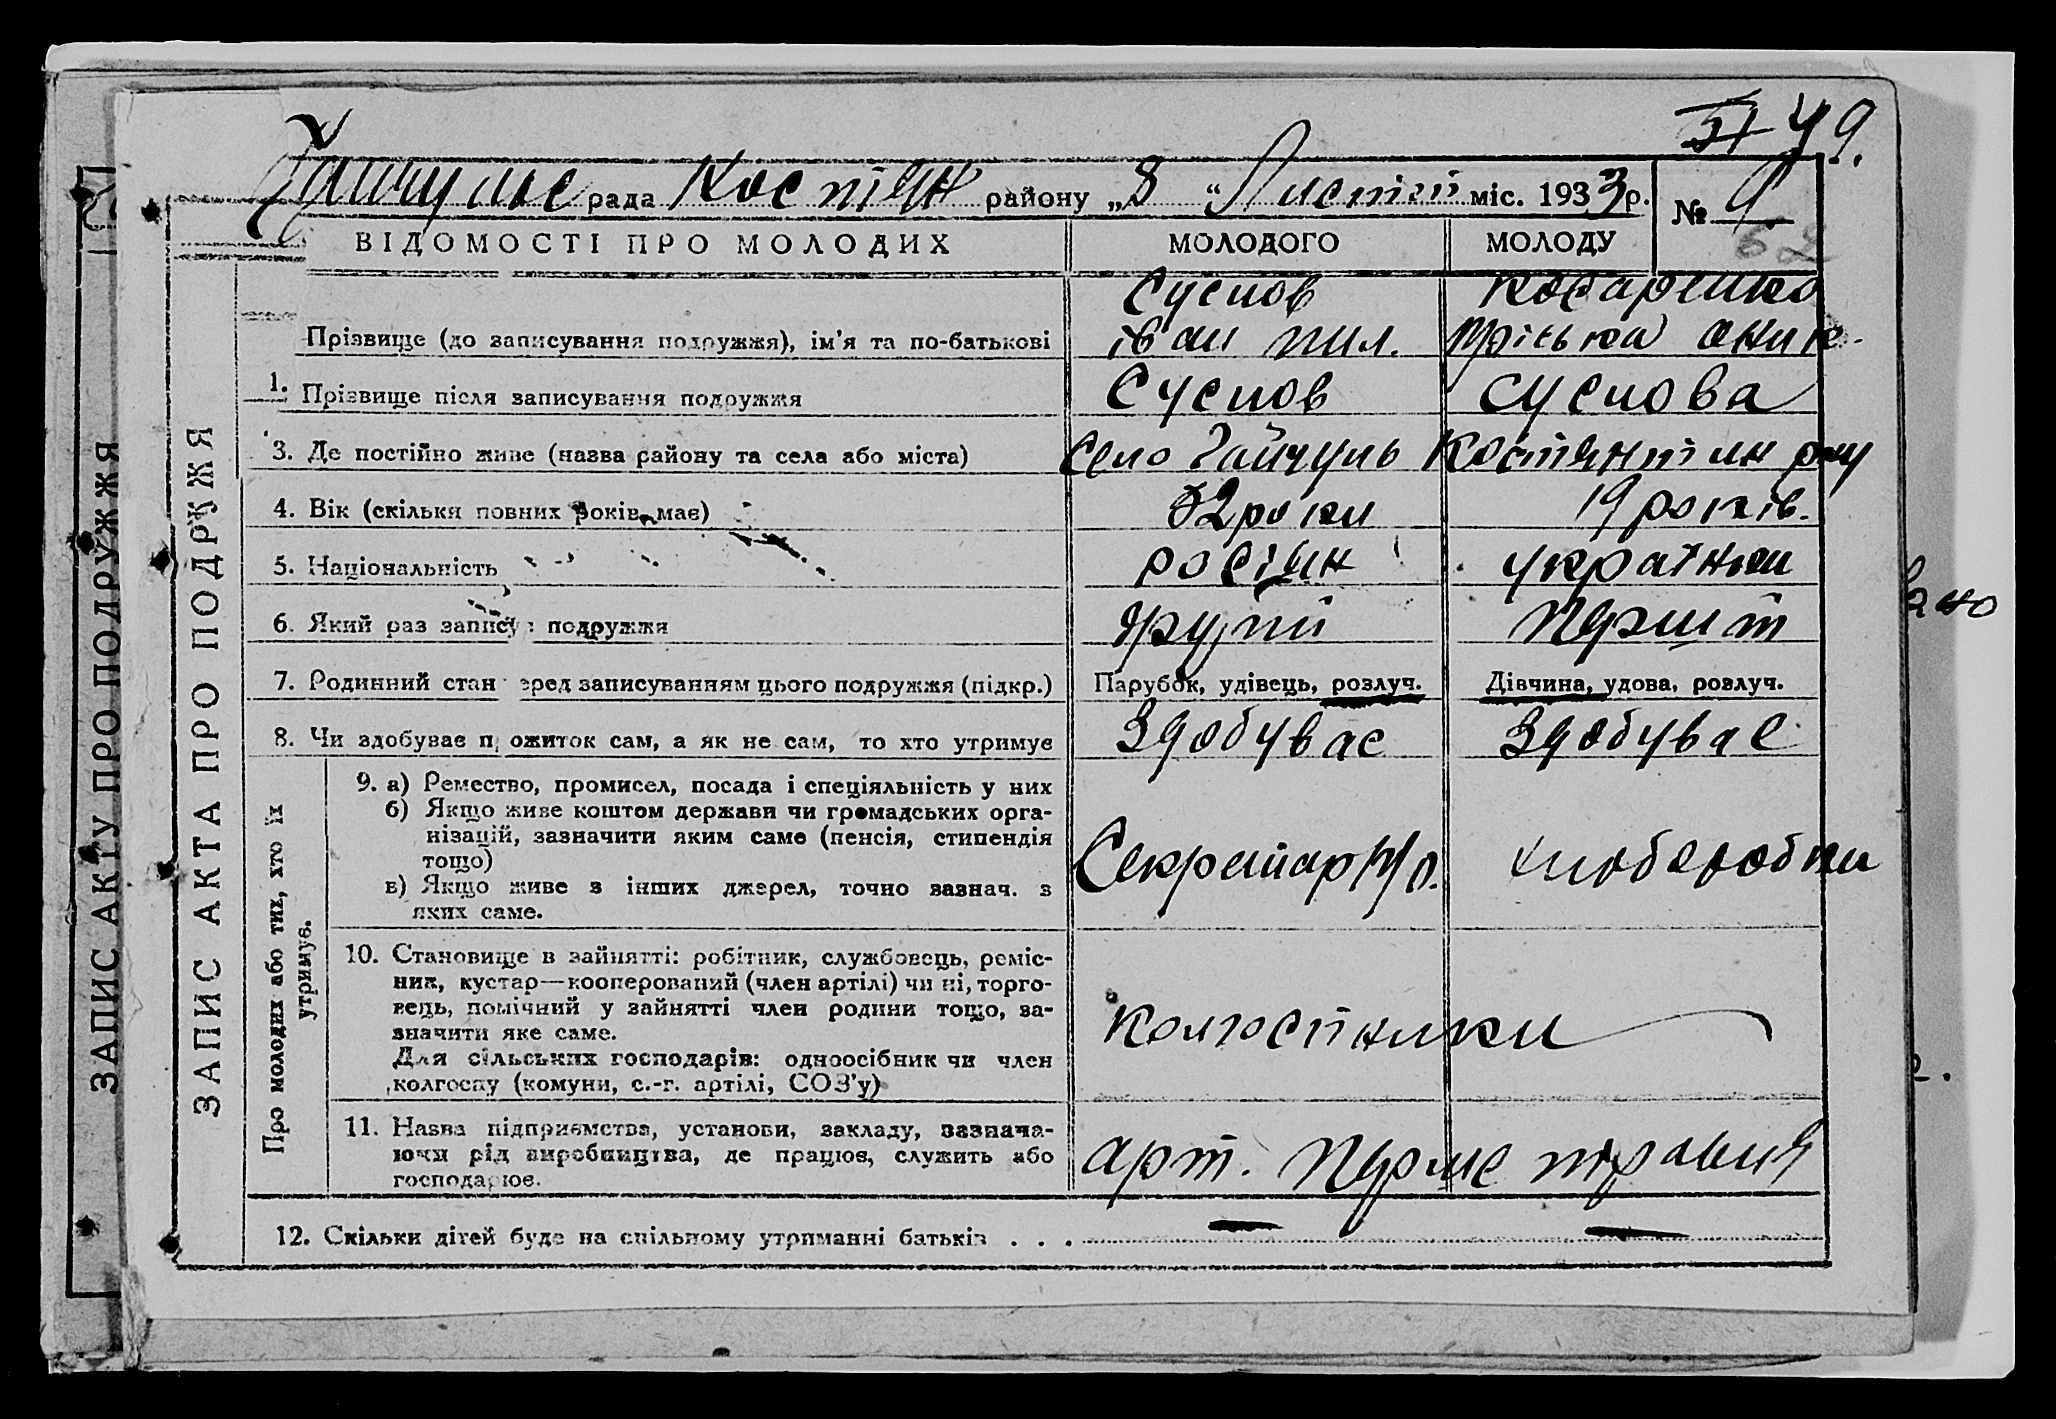 49.
Гайчульс рада Костян району „8 “ Листоп міс. 1933 р. № 9
62
ВІДОМОСТІ ПРО МОЛОДИХ МОЛОДОГО МОЛОДУ
Суснов Косаренко
Прізвище (до записування подружжя), ім'я та по-батькові іван пил. Пріська
1. Прізвище після записування подружжя Суснов Суснова
3. Де постійно живе (назва району та села або міста) село Гайчуль Костянтин р-ну
4. Вік (скільки повних років має) 32 роки 19 років.
5. Національність росіян українки
6. Який раз записує подружжя другий Перший
7. Родинний стан перед записуванням цього подружжя (підкр.) Парубок, удівець, розлуч. Дівчина, удова, розлуч.
8. Чи здобуває прожиток сам, а як не сам, то хто утримує Здобуває Здобуває
9. а) Ремество, промисел, посада і спеціяльність у них
б) Якщо живе коштом держави чи громадських орга-
нізацій, зазначити яким саме (пенсія, стипендія
тощо)
Секретар хлоборобки
в) Якщо живе з інших джерел, точно зазнач. з
яких саме.
10. Становище в зайнятті: робітник, службовець, реміс-
ник, кустар—кооперований (член артілі) чи ні, торго-
вець, помічний у зайнятті член родини тощо, за-
значити яке саме.
Колгоспники
Для сільських господарів: одноосібник чи член
колгоспу (комуни, с.-г. артілі, СОЗ'у)
11. Назва підприємства, установи, закладу, зазнача-
ючи рід виробництва, де працює, служить або
господарює.
арт. Перше травня
12. Скільки дітей буде на спільному утриманні батьків . . . — —
ЗАПИС АКТА ПРО ПОДРУЖЖЯ
Про молодих або тих, хто їх
утримує.
ЗАПИС АКТУ ПРО ПОДРУЖЖЯ